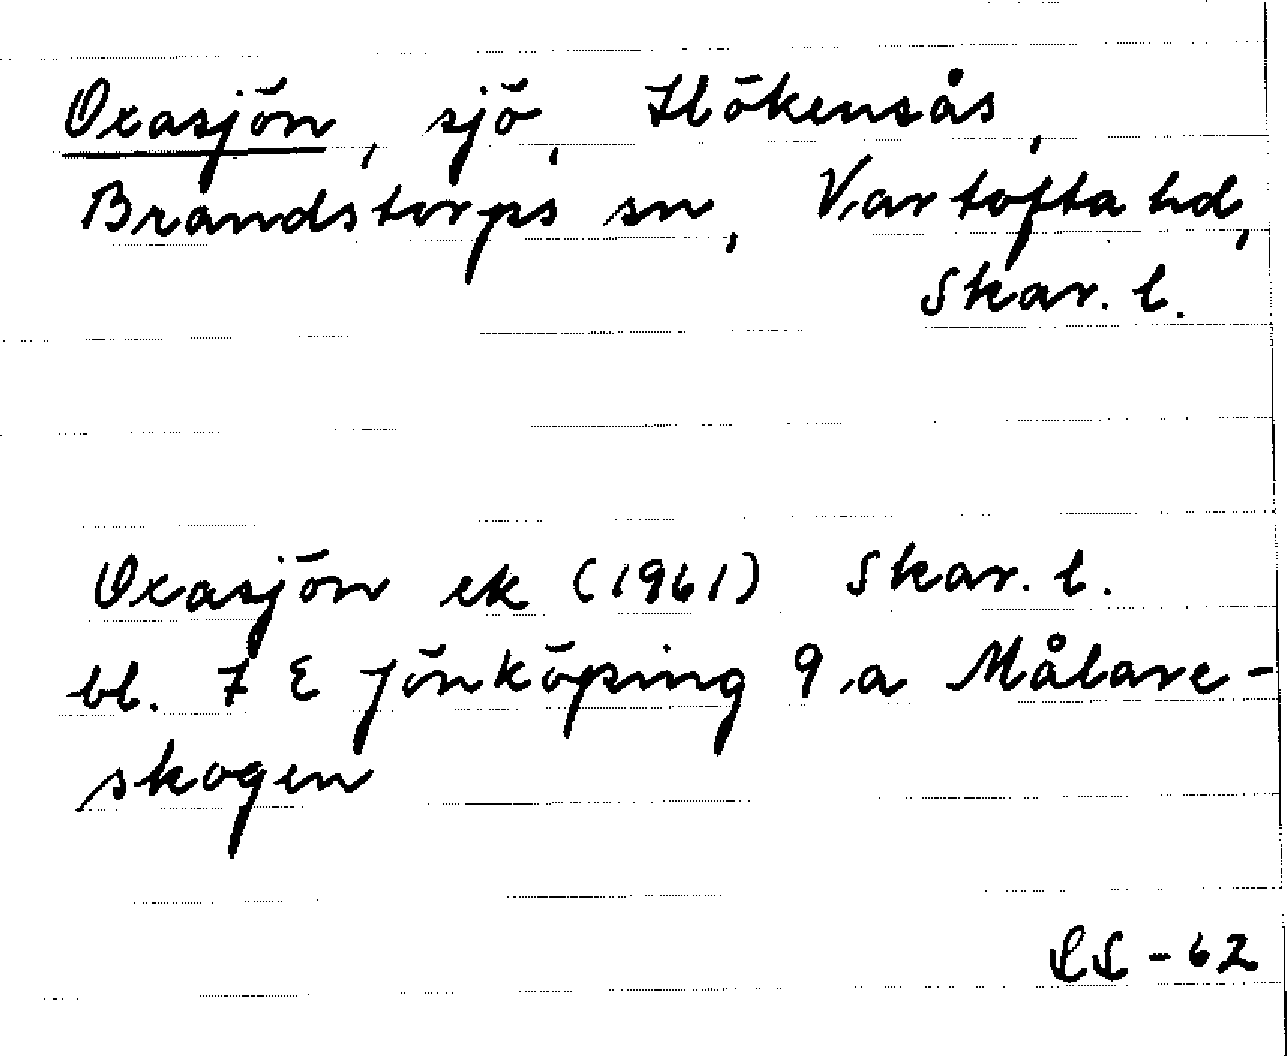 Oxasjön, sjö, Hökensås,
Brandstorps sn, Vartofta hd,
Skar. l.
Oxasjön ek (1961) Skar. l.
bl. 7 E Jönköping 9 a Målare-
skogen
-62